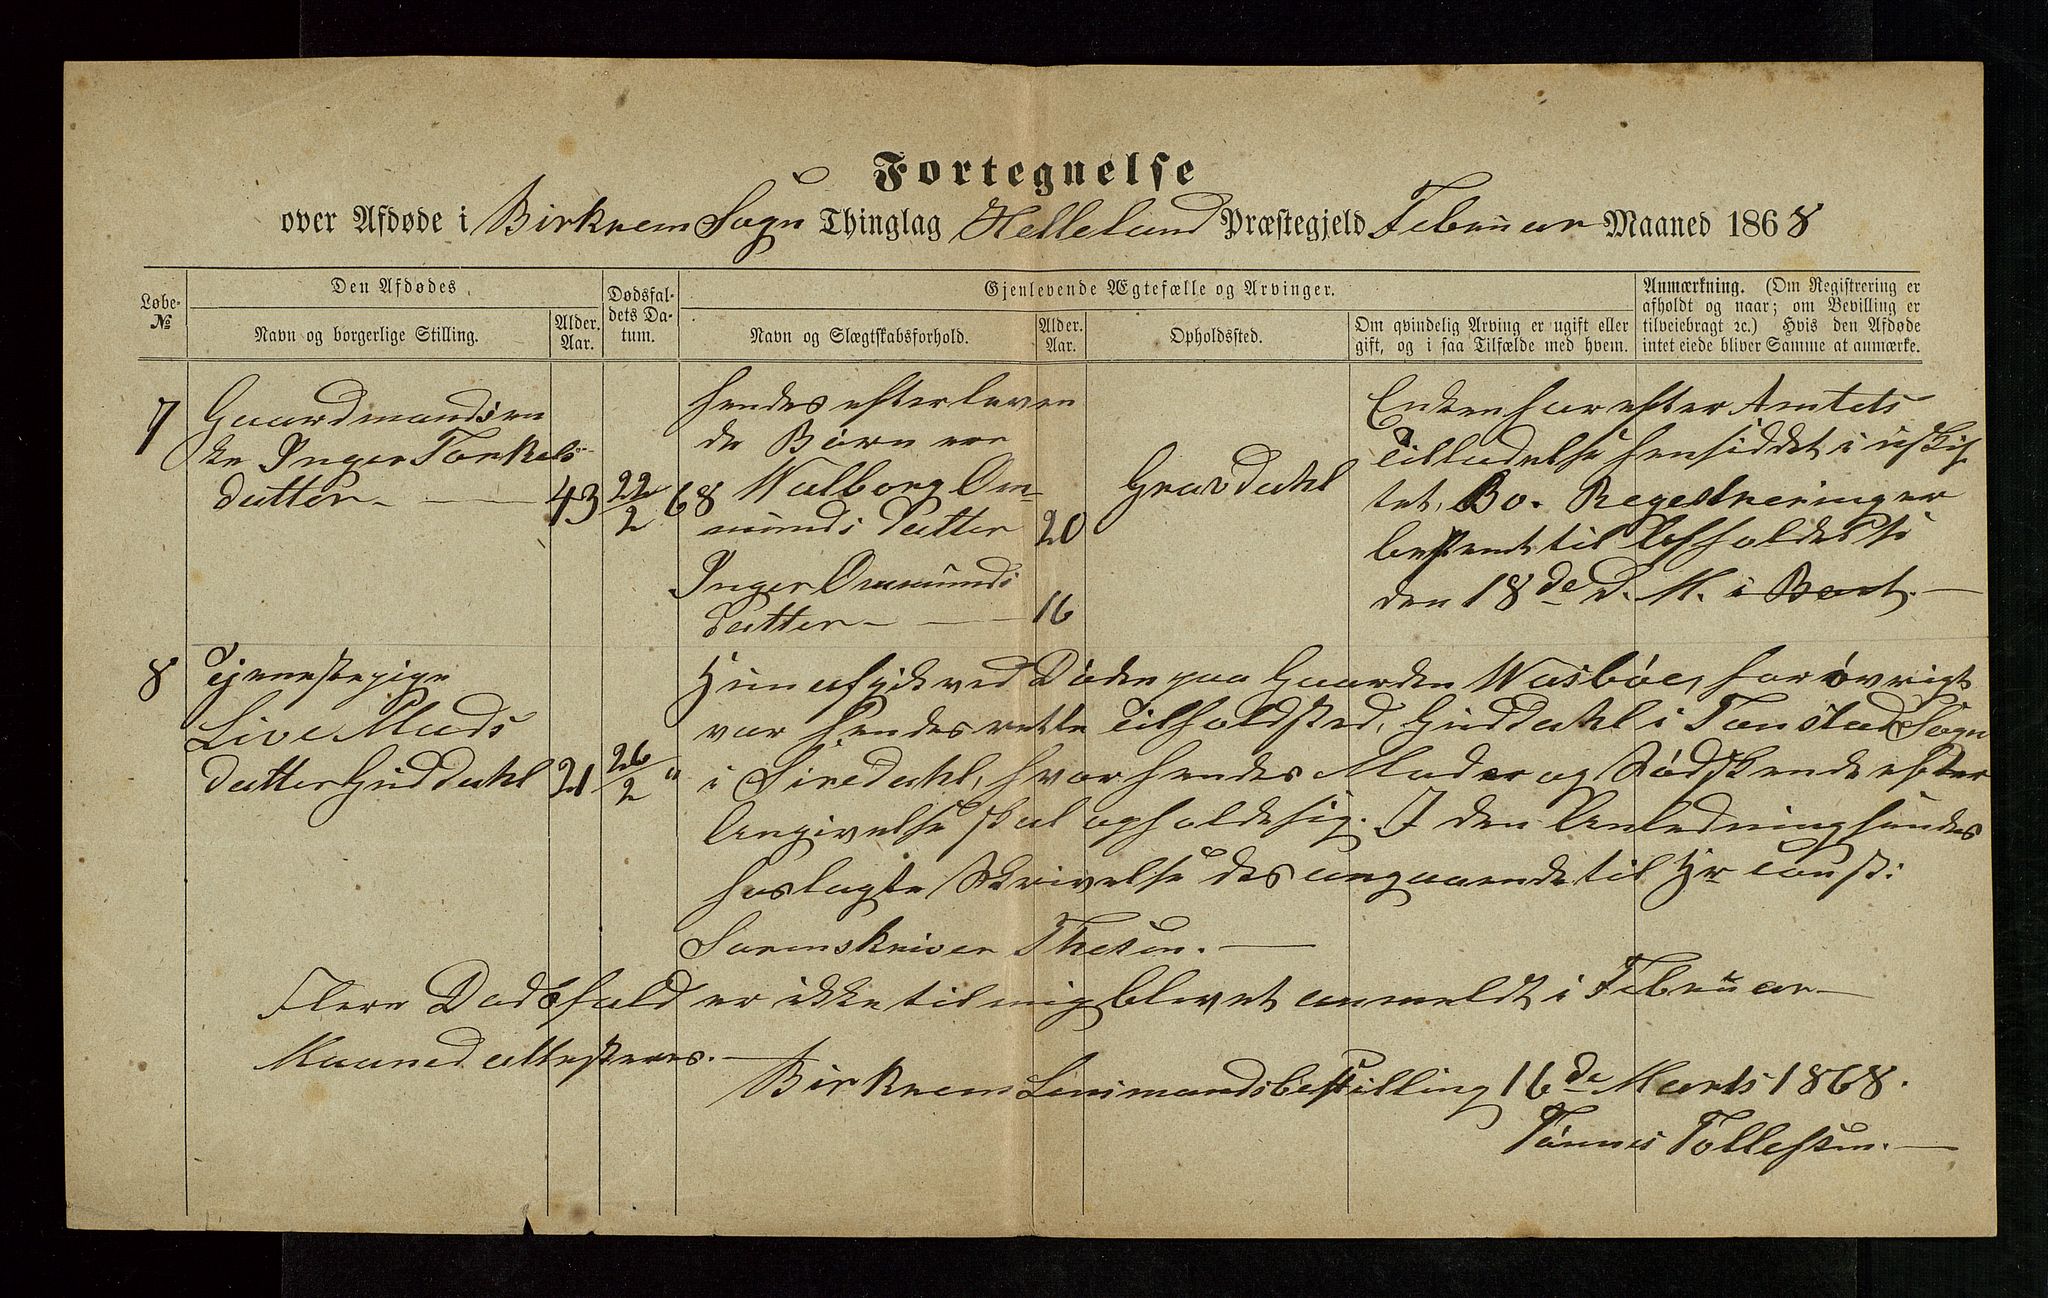 Fortegnelse
over Afdøde i Birkrem Sogn Thinglag Helleland Præstegjeld Februar Maaned 1868
Løbe-
№
Den Afdødes
Navn og borgerlige Stilling.
Alder.
Aar.
Dødsfal-
dets Da-
tum.
Gjenlevende Ægtefælle og Arvinger.
Navn og Slægtskabsforhold.
Alder.
Aar.
Opholdssted.
Om qvindelig Arving er ugift eller
gift, og i saa Tilfælde med hvem.
Anmærkning. (Om Registrering er
afholdt og naar; om Bevilling er
tilveiebragt ꝛc.) Hvis den Afdøde
intet eiede bliver Samme at anmærke.
7
Gaardmandsen
ke Inger Tonkels
datter - 43 22/2 68
hendes efterleven
de Børn ere
Walborg Om-
munds datter 20
Inger Ommunds
datter - 16
Gravdahl
Enken har efter Amtets
Tilladelse hensiddet i uskif
tet Bo. Regestrering er
bestemt til Afholdelse
den 18de d. M. i Bort.
8
Tjenestepige
Live Mads
datter Guddahl 21 26/2 "
Hun afgik ved Døden paa Gaarden Wasbøe, for øvrigt
var hendes rette Tilholdsted, Guddahl i Tonstad Sogn
i Siredahl, hvor hendes Moder og Sødskende efter
Angivelse skal opholde sig. I den Anledning sendes
hoslagte Skrivelse des angaaende til Hr Const:
Sorenskriver Thesen.
Flere Dødsfald er ikke til mig blevet anmeldt i Februar
Maaned attesteres.
Birkrem Lensmandsbestilling 16de Marts 1868.
Tønnes Tollefsen.